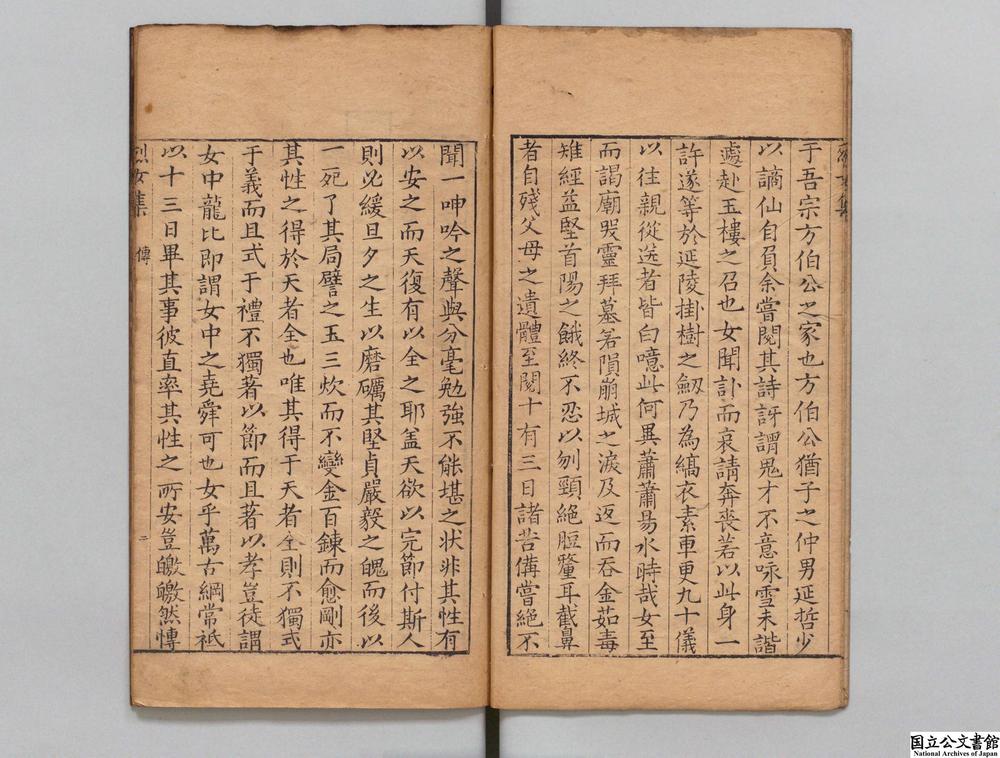 于吾宗方伯公之家也方伯公猶子之仲男延哲少
以謫仙自負余嘗閱其詩訝謂鬼才不意咏雪未諧
遽赴玉樓之召也女聞訃而哀請奔喪若以此身一
許遂等於延陵掛樹之劔乃為縞衣素車更九十儀
以往親從送者皆曰噫此何異蕭蕭易水時哉女至
而謁廟哭靈拜墓若隕崩城之淚及返而吞金茹毒
雉經益堅首陽之餓終不忍以刎頸絕脰釐耳截鼻
者自殘父母之遺體至閱十有三日諸苦備嘗絕不
聞一呻吟之聲與分毫勉強不能堪之狀非其性有
以安之而天復有以全之耶盖天欲以完節付斯人
則必緩旦夕之生以磨礪其堅貞嚴毅之魄而後以
一死了其局譬之玉三炊而不變金百鍊而愈剛亦
其性之得於天者全也唯其得于天者全則不獨式
于義而且式于禮不獨著以節而且著以孝豈徒謂
女中龍比即謂女中之堯舜可也女乎萬古綱常祗
以十三日畢其事彼直率其性之所安豈皦皦然慱
烈女集
傳
二
国立公文書館
National Archives of Japan